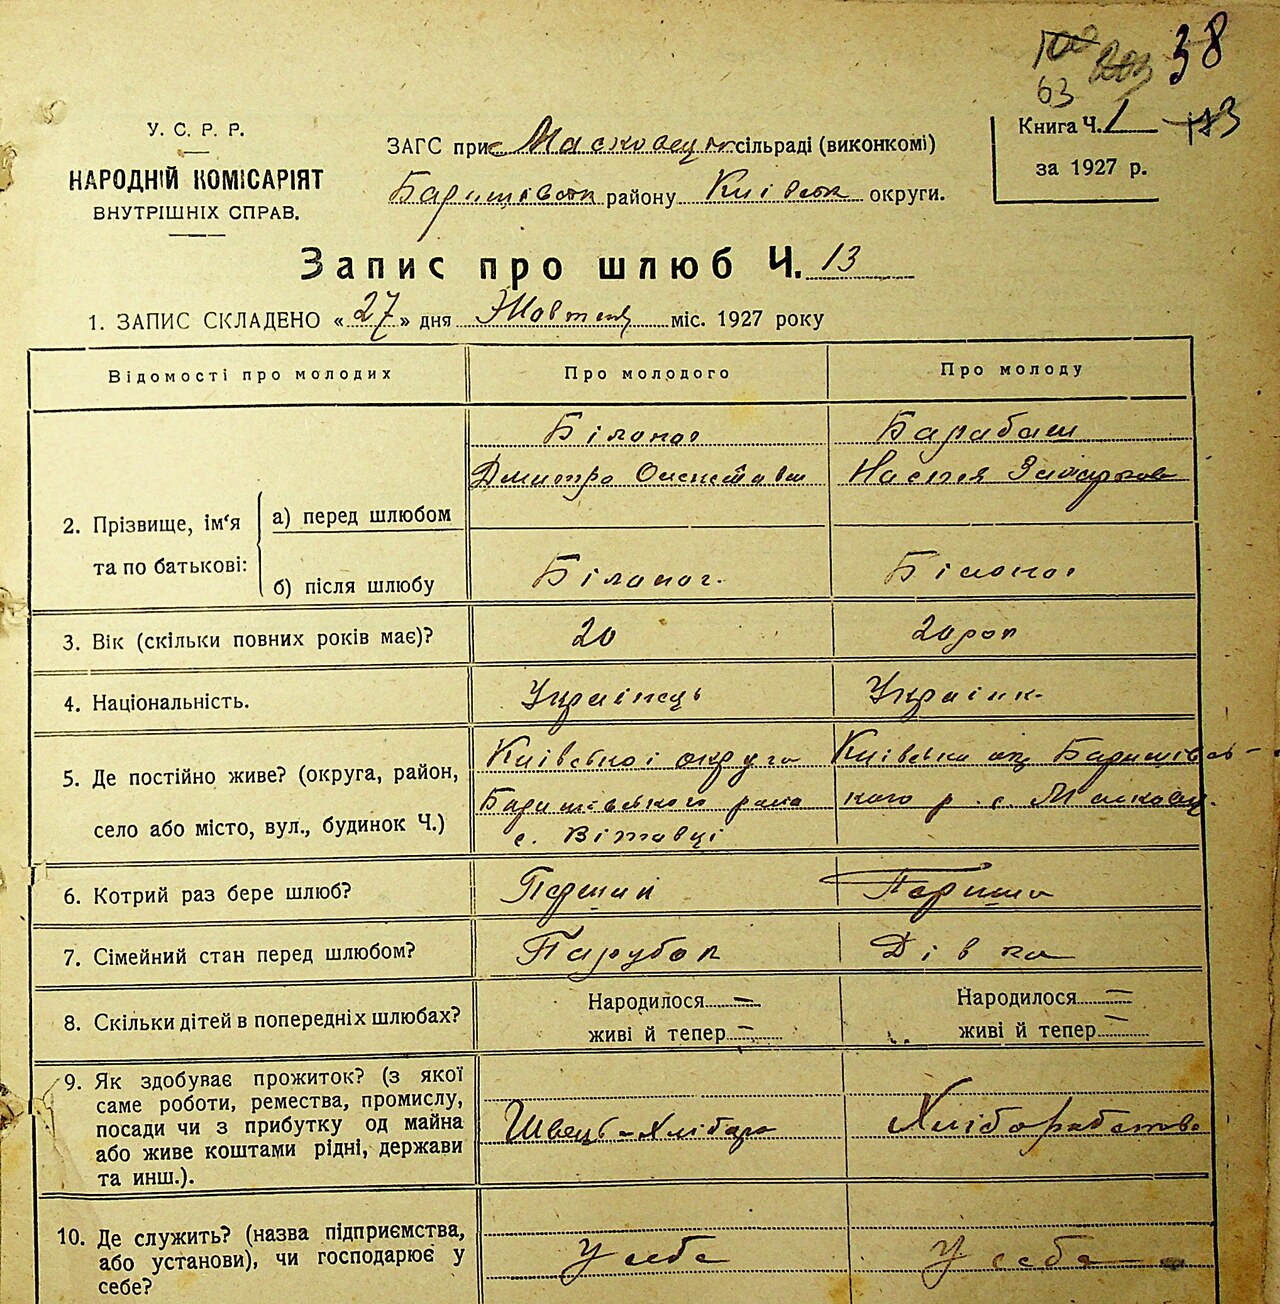 38
63
У. С. Р. Р.
НАРОДНІЙ КОМІСАРІЯТ
ВНУТРІШНІХ СПРАВ.
ЗАГС при сільраді (виконкомі)
району округи.
Книга Ч. 1
за 1927 р.
Запис про шлюб Ч. 13
1. ЗАПИС СКЛАДЕНО «27» дня Жовтня міс. 1927 року
Відомості про молодих
Про молодого
Про молоду
2. Прізвище, ім'я
та по батькові:
а) перед шлюбом
б) після шлюбу
Білоног
Дмитро
Барабаш
Настя
Білоног.
Білоног
3. Вік (скільки повних років має)?
20
20 рок
4. Національність.
Українець
Україик.
5. Де постійно живе? (округа, район,
село або місто, вул., будинок Ч.)
Київської округа
Баришівського рана
с.
Київська ок Баришівсь-
кого р. с.
6. Котрий раз бере шлюб?
Перший
Перша
7. Сімейний стан перед шлюбом?
Парубок
Дівка
8. Скільки дітей в попередніх шлюбах?
Народилося —
живі й тепер —
Народилося —
живі й тепер —
9. Як здобуває прожиток? (з якої
саме роботи, ремества, промислу,
посади чи з прибутку од майна
або живе коштами рідні, держави
та инш.).
Швець-Хлібор
10. Де служить? (назва підприємства,
або установи), чи господарює у
себе?
У себе
У себе